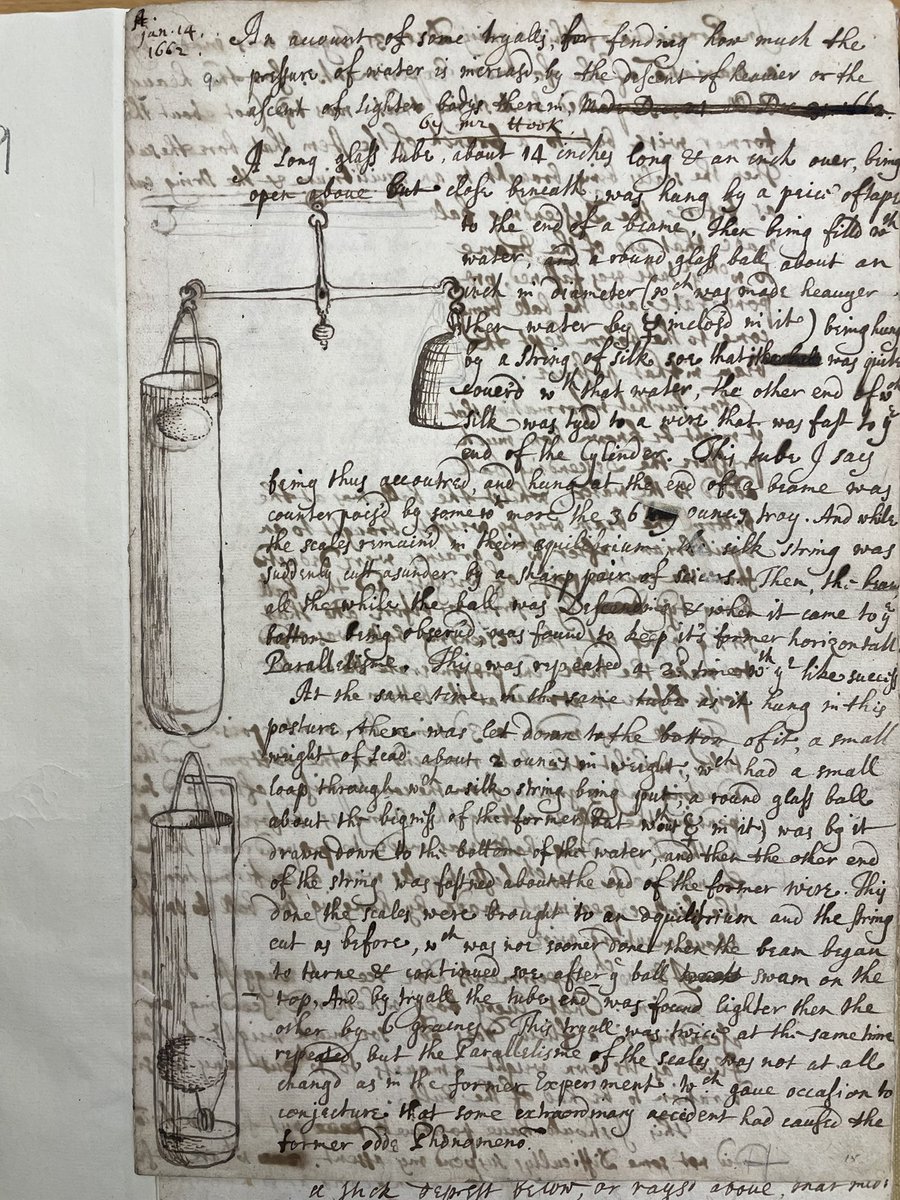 Jan. 14.
1662.
An account of some tryalls, for finding how much the
pressure of water is increasd, by the descent of heavier or the
ascent of lighter bodys therein
by mr Hook.
A Long glasse tube, about 14 inches long & an inch over, being
open above but close beneath, was hung by a peice of tape
to the end of a beame, Then being filld wth
water, and a round glasse ball about an
inch in diameter (wch was made heavyer
then water by inclosd in it) being hung
by a string of silk soe that was quite
coverd wth that water, the other end of wch
silk was tyed to a wire that was fast to ye
end of the Cylinder. This tube I say
being thus accoutred, and hung at the end of a beame was
counterpoisd by somewt more the 36 ounces troy. And while
the scales remaind in their equilibrium the silk string was
suddenly cutt asunder by a sharp pair of scicers. Then, the beam
all the while the ball was Descending & when it came to ye
bottom being observd, was found to keep it's former horizontall
Parallelisme. This was repeated a 2d time wth ye like success
At the same time in the same tube as it hung in this
posture, there was let down to the bottom of it, a small
weight of lead about 2 ounces in weight, wch had a small
loop through wch a silk string being put, a round glasse ball
about the bigniss of the former (but wthout in it) was by it
drawn down to the bottom of the water, and then the other end
of the string was fastned about the end of the former wire. This
done the scales were brought to an equilibrium and the string
cut as before, wch was noe sooner done then the beam began
to turne & continued soe after ye ball swam on the
top, And by tryall the tube end was found lighter then the
other by 6 graines. This tryall was twice at the same time
repeated, but the Parallelisme of the scales was not at all
changd as in the former Experiment. wch gave occasion to
conjecture that some extraordinary accedent had caused the
former odde Phænomeno.
a stick deprest below, or rayst above, that